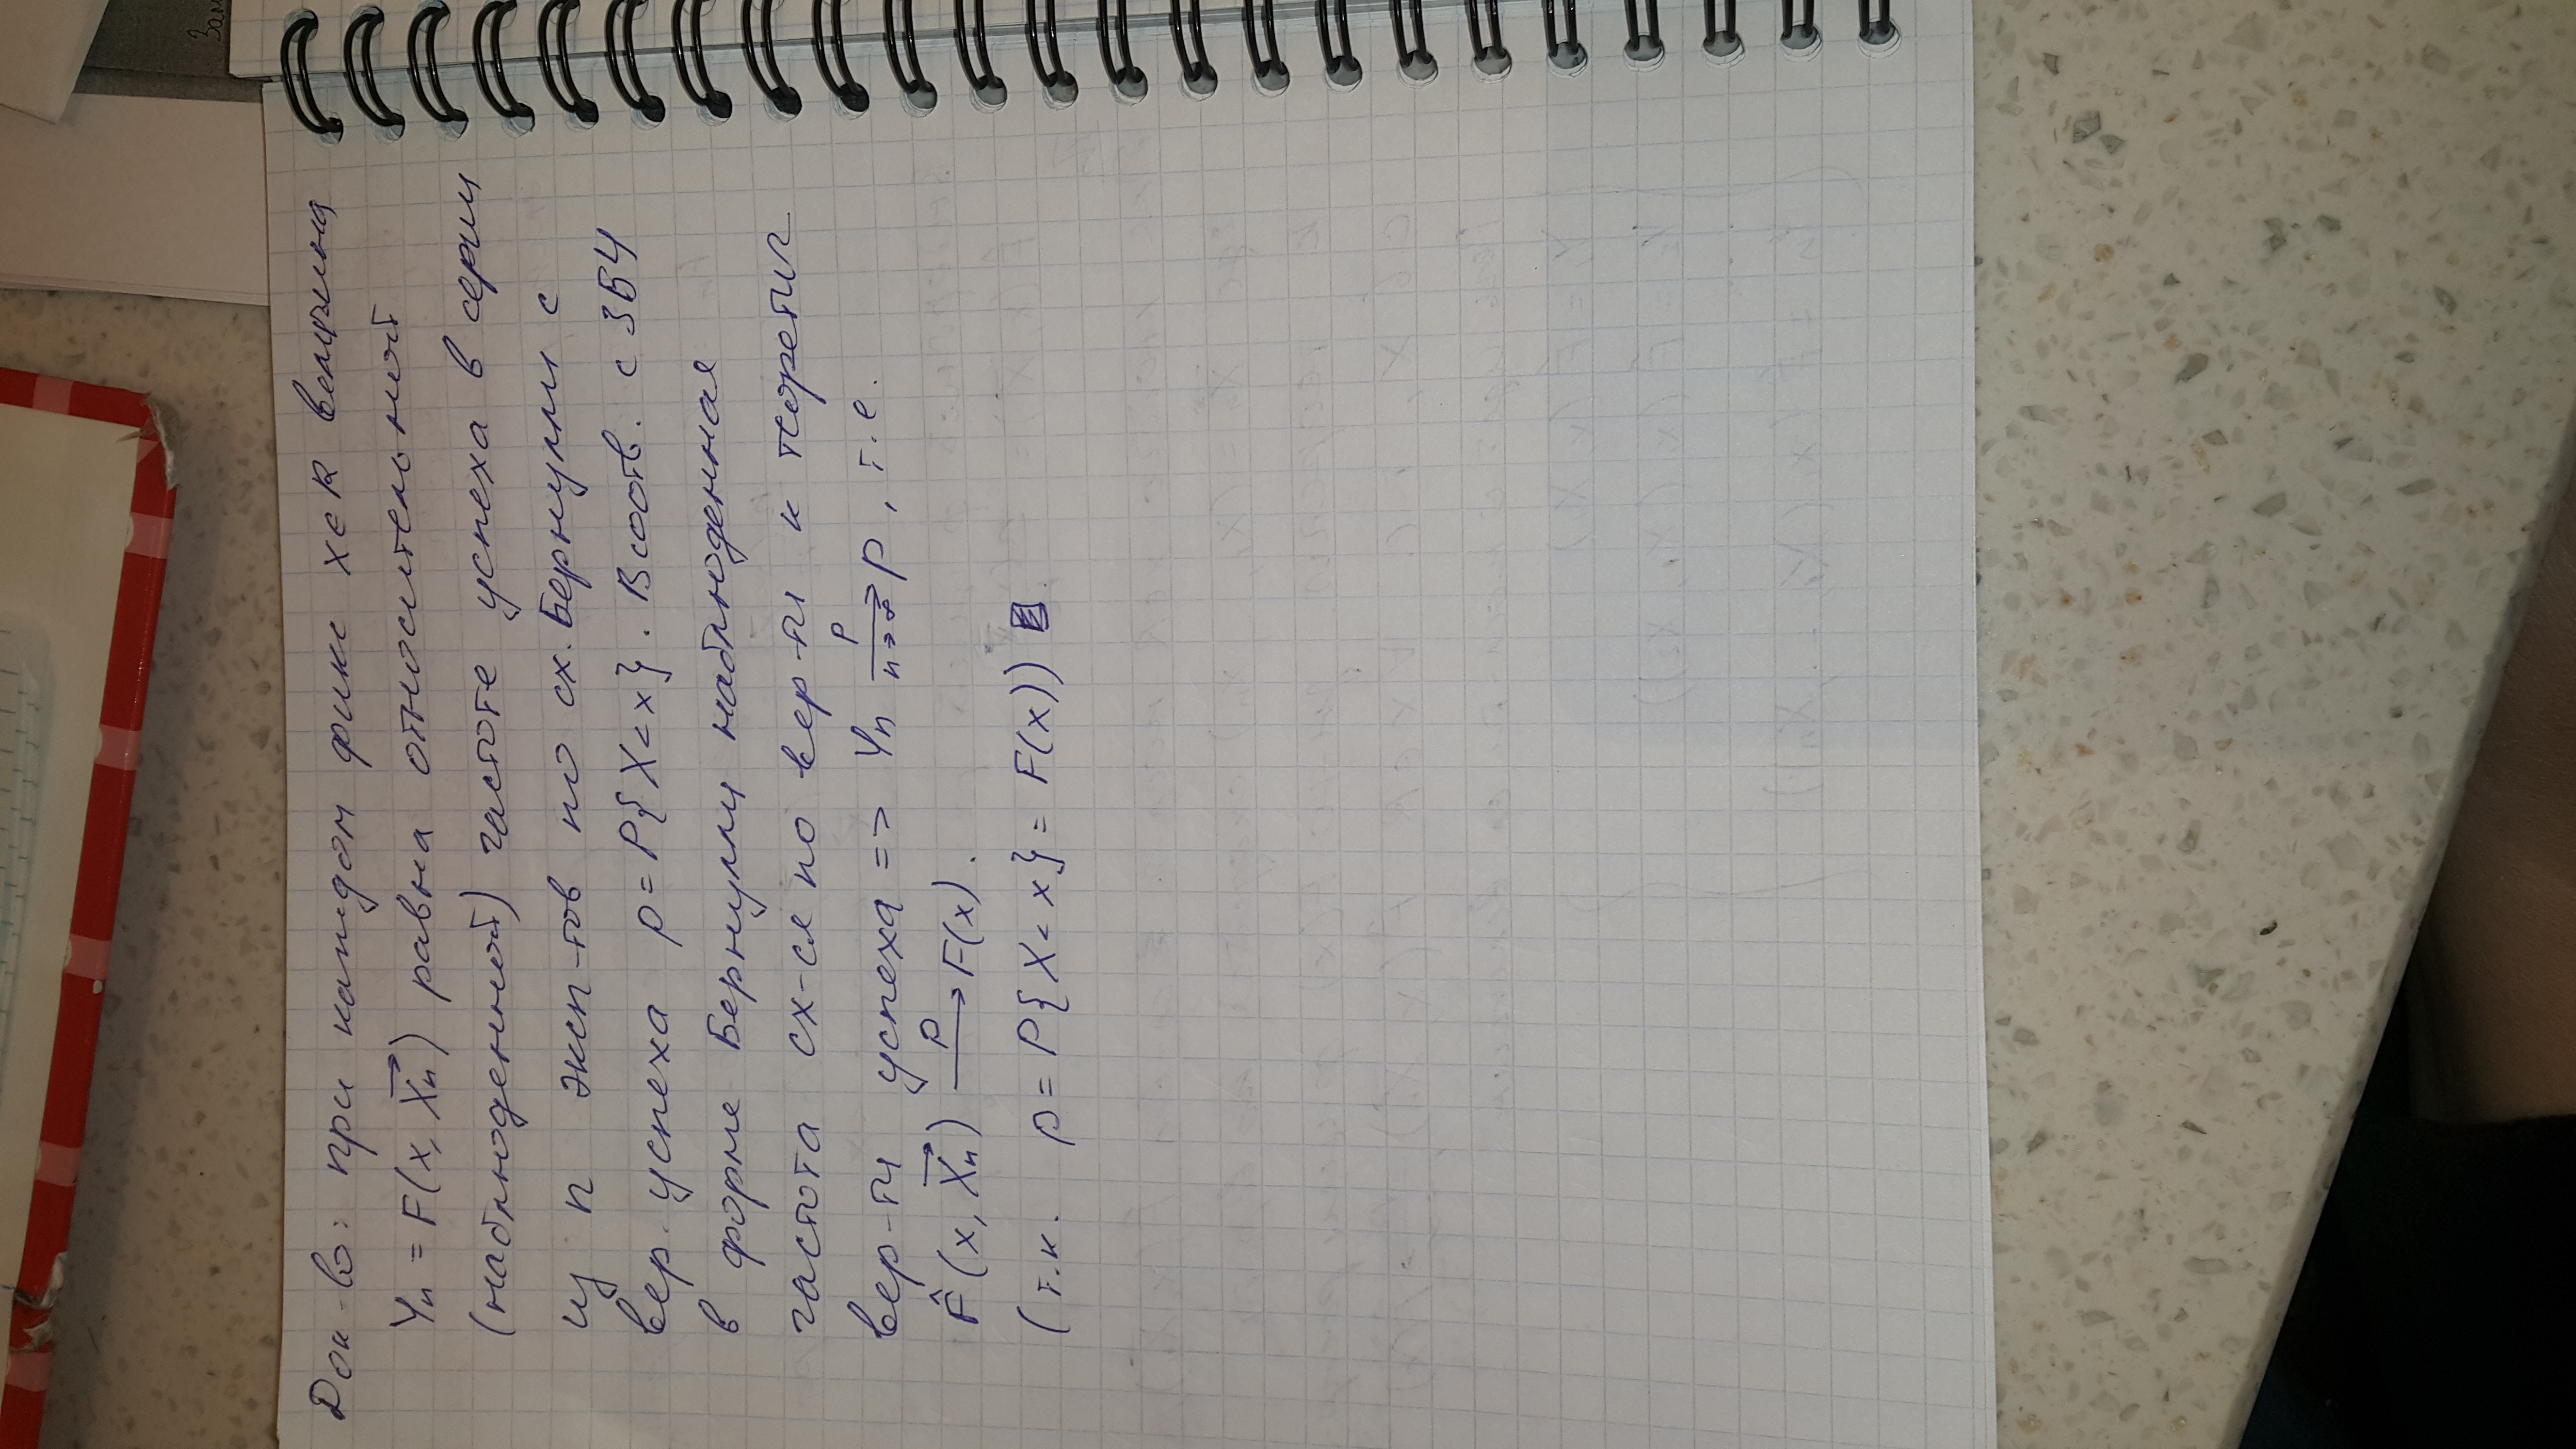 Док-во: при каждом фикс x∈R величина
Yn = F(x, X⃗n) равна относительной
(наблюденной) частоте успеха в серии
из n эксп-тов по сх. Бернулли с
вер. успеха p = P{X < x}. В соотв. с ЗБЧ
в форме Бернулли наблюденная
частота сх-ся по вер-ти к теоретич
вер-ти успеха => Yn —P→ n→∞ p, т.е.
F̂(x, X⃗n) —P→ F(x).
(т.к. p = P{X < x} = F(x))